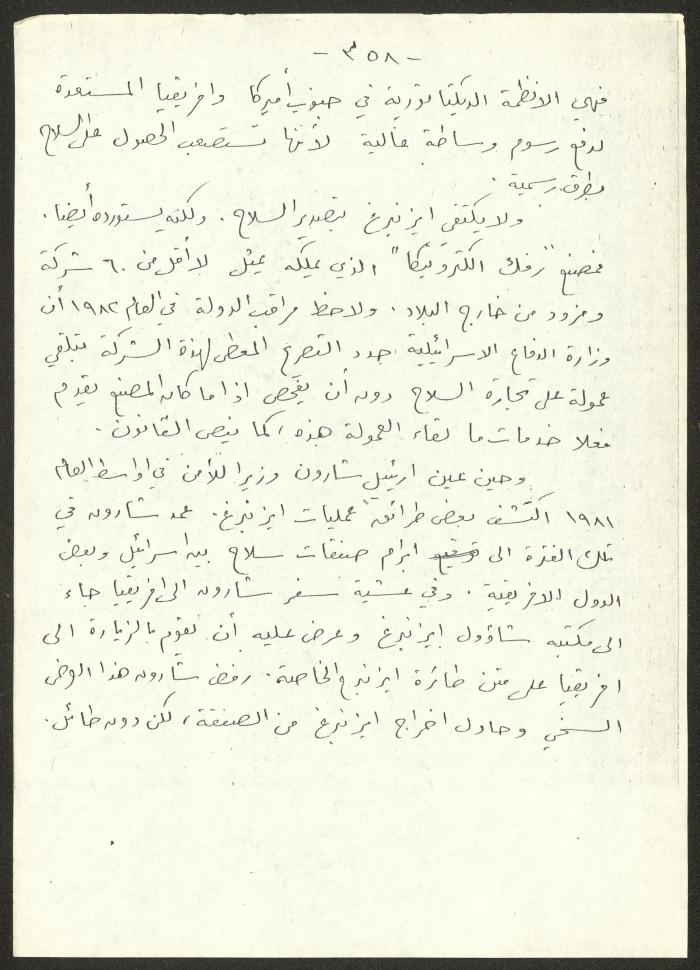 - ٣٥٨ -
فهي الانظمة الديكتاتورية في جنوب أميركا وافريقيا المستعدة
لدفع رسوم وساطة عالية لأنها تستصعب الحصول على السلاح
بطرق رسمية.
ولا يكتفي ايزنبرغ بتصدير السلاح. ولكنه يستورده أيضا.
فمصنع "رفك الكترونيكا" الذي يملكه يمثل لا أقل من ٦٠ شركة
ومزود من خارج البلاد. ولاحظ مراقب الدولة في العام ١٩٨٢ أن
وزارة الدفاع الاسرائيلية جدد التصريح المعطى لهذة الشركة بتلقي
عمولة على تجارة السلاح دون أن يفحص اذا ما كان المصنع يقدم
فعلا خدمات ما لقاء العمولة هذه، كما ينص القانون.
وحين عين ارئيل شارون وزيرا للأمن في اواسط العام
١٩٨١ اكتشف بعض طرائق عمليات ايزنبرغ. عمد شارون في
تلك الفترة الى توقيع ابرام صفقات سلاح بين اسرائيل وبعض
الدول الافريقية. وفي عشية سفر شارون الى افريقيا جاء
الى مكتبه شاؤول ايزنبرغ وعرض عليه أن يقوم بالزيارة الى
افريقيا على متن طائرة ايزنبرغ الخاصة. رفض شارون هذا العرض
السخي وحاول اخراج ايزنبرغ من الصفقة، لكن دون طائل.